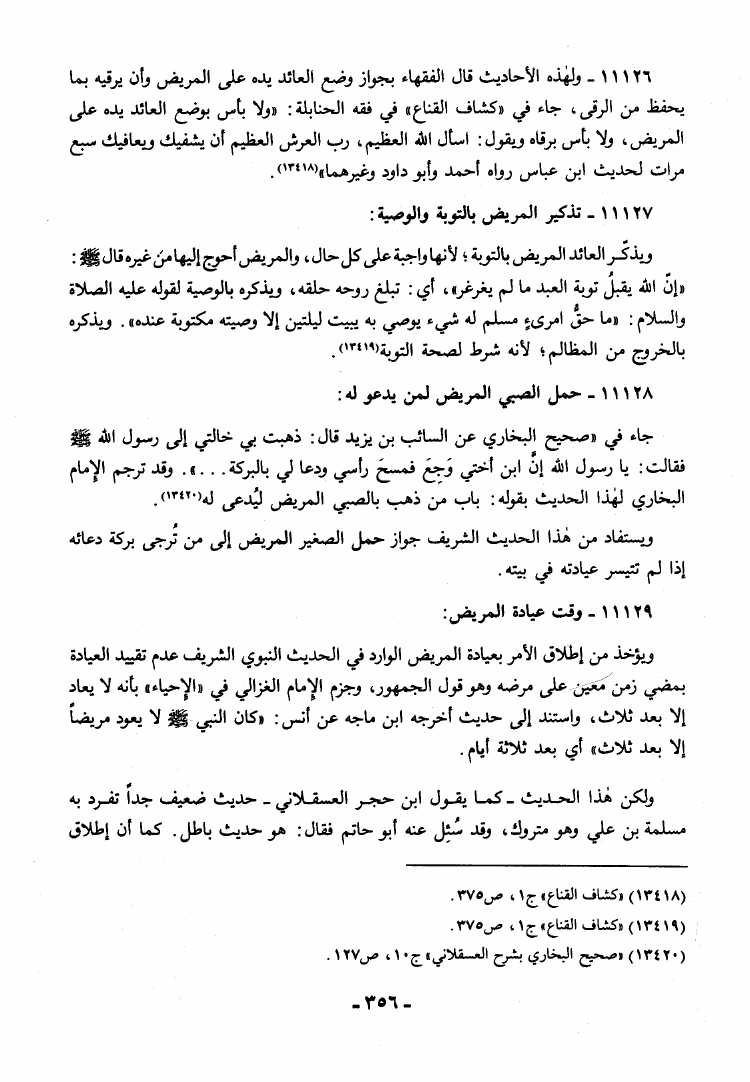 ١١١٢٦ ـ ولهذه الأحاديث قال الفقهاء بجواز وضع العائد يده على المريض وأن يرقيه بما
يحفظ من الرقى، جاء في «كشاف القناع» في فقه الحنابلة: «ولا بأس بوضع العائد يده على
المريض، ولا بأس برقاه ويقول: اسأل الله العظيم، رب العرش العظيم أن يشفيك ويعافيك سبع
مرات لحديث ابن عباس رواه أحمد وأبو داود وغيرهما»(١٣٤١٨).
١١١٢٧ ـ تذكير المريض بالتوبة والوصية:
ويذكّر العائد المريض بالتوبة؛ لأنها واجبة على كل حال، والمريض أحوج إليها من غيره قال ﷺ:
«إنّ الله يقبلُ توبة العبد ما لم يغرغر»، أي: تبلغ روحه حلقه، ويذكره بالوصية لقوله عليه الصلاة
والسلام: «ما حقُّ امرىءٍ مسلم له شيء يوصي به يبيت ليلتين إلا وصيته مكتوبة عنده». ويذكره
بالخروج من المظالم؛ لأنه شرط لصحة التوبة(١٣٤١٩).
١١١٢٨ ـ حمل الصبي المريض لمن يدعو له:
جاء في «صحيح البخاري عن السائب بن يزيد قال: ذهبت بي خالتي إلى رسول الله ﷺ
فقالت: يا رسول الله إنَّ ابن أختي وَجِعَ فمسحَ رأسي ودعا لي بالبركة...». وقد ترجم الإمام
البخاري لهذا الحديث بقوله: باب من ذهب بالصبي المريض ليُدعى له(١٣٤٢٠).
ويستفاد من هذا الحديث الشريف جواز حمل الصغير المريض إلى من تُرجى بركة دعائه
إذا لم تتيسر عيادته في بيته.
١١١٢٩ ـ وقت عيادة المريض:
ويؤخذ من إطلاق الأمر بعيادة المريض الوارد في الحديث النبوي الشريف عدم تقييد العيادة
بمضي زمن معين على مرضه وهو قول الجمهور، وجزم الإمام الغزالي في «الإحياء» بأنه لا يعاد
إلا بعد ثلاث، واستند إلى حديث أخرجه ابن ماجه عن أنس: «كان النبي ﷺ لا يعود مريضاً
إلا بعد ثلاث» أي بعد ثلاثة أيام.
ولكن هذا الحديث ـ كما يقول ابن حجر العسقلاني ـ حديث ضعيف جداً تفرد به
مسلمة بن علي وهو متروك، وقد سُئِل عنه أبو حاتم فقال: هو حديث باطل. كما أن إطلاق
(١٣٤١٨) «كشاف القناع» ج١، ص٣٧٥.
(١٣٤١٩) «كشاف القناع» ج١، ص٣٧٥.
(١٣٤٢٠) «صحيح البخاري بشرح العسقلاني» ج١٠، ص١٢٧.
ـ ٣٥٦ ـ